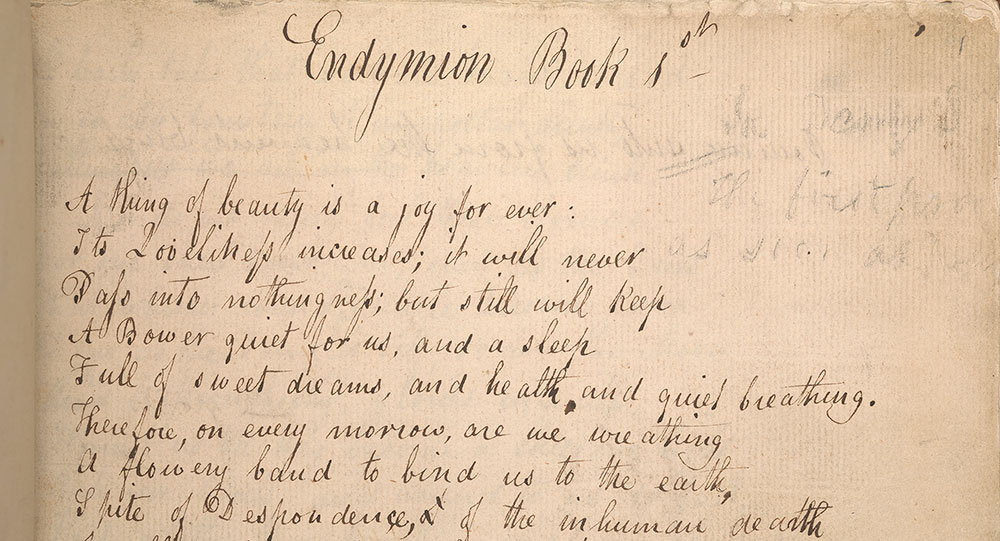 Endymion Book 1st
1
A thing of beauty is a joy for ever:
Its Loveliness increases; it will never
Pass into nothingness; but still will keep
A Bower quiet for us, and a sleep
Full of sweet dreams, and health, and quiet breathing.
Therefore, on every morrow, are we wreathing
A flowery band to bind us to the earth,
Spite of Despondence, of the inhuman dearth